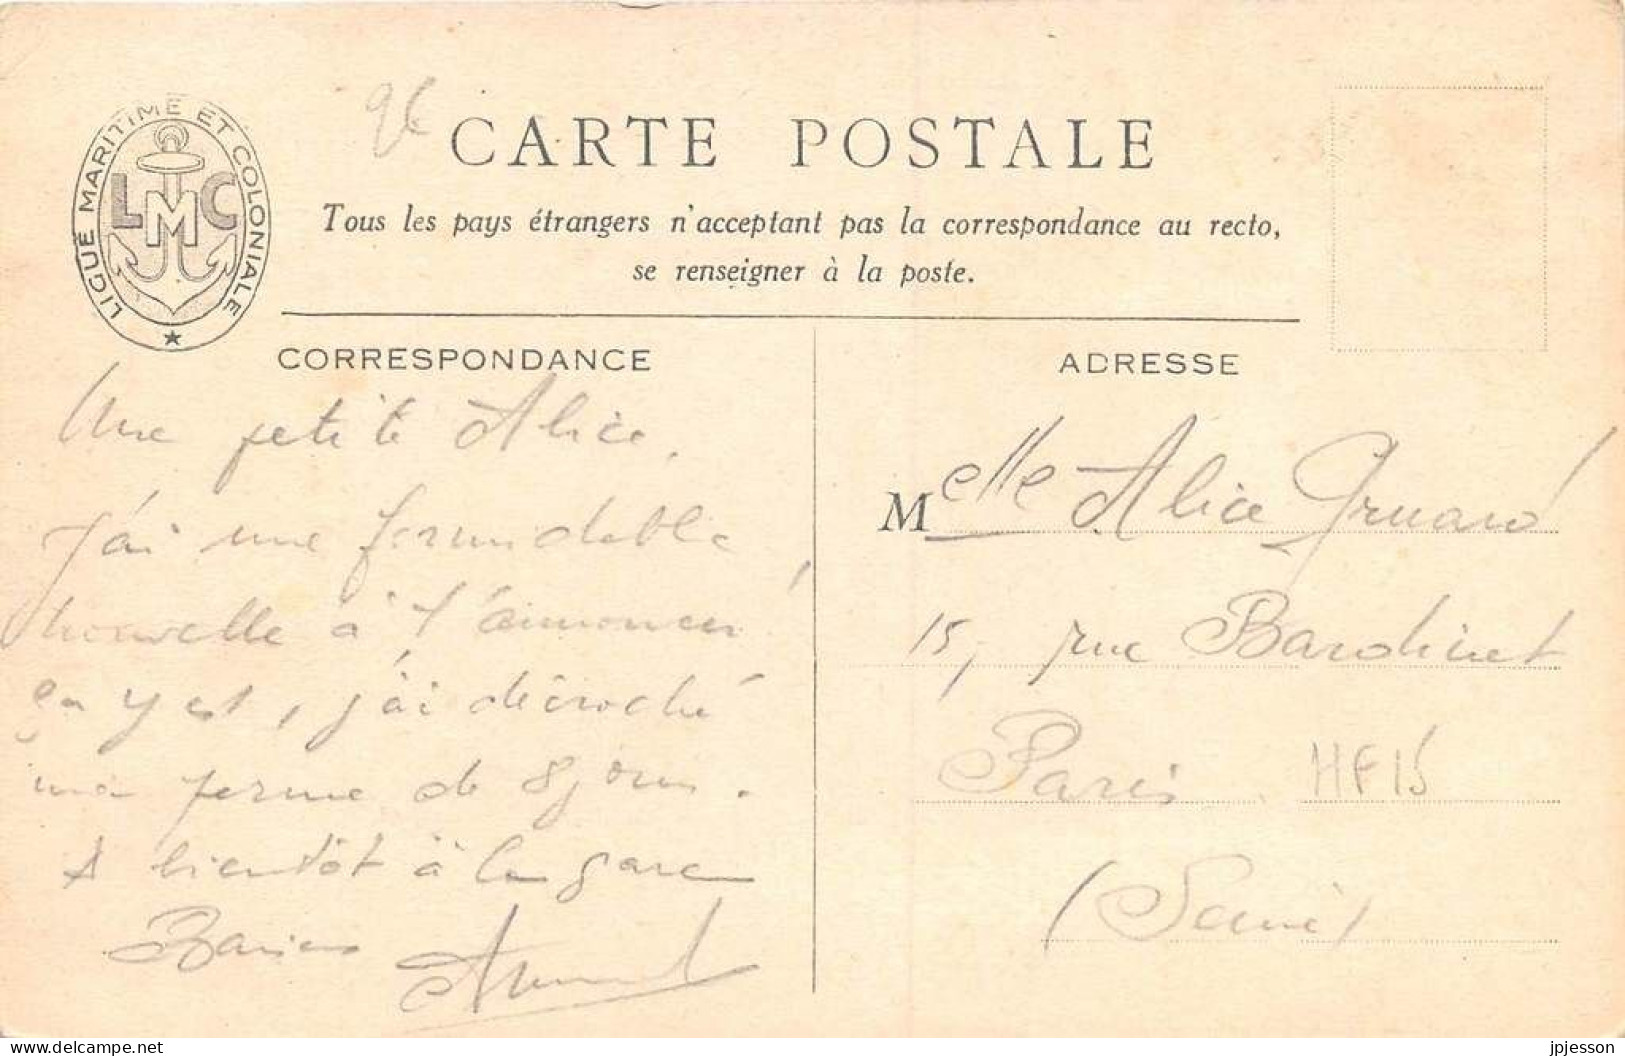 LIGUE MARITIME ET COLONIALE
LMC
CARTE POSTALE
Tous les pays étrangers n'acceptant pas la correspondance au recto,
se renseigner à la poste.
CORRESPONDANCE
ADRESSE
petite Alice,
J'ai une formidable
nouvelle à t'annoncer,
ça y est, j'ai décroché
ma perme de 8 jours.
A bientôt à la gare
Baisers
Melle Alice Gruard
15, rue Bardinet
Paris HF15
(Seine)
delcampe.net
jpjesson